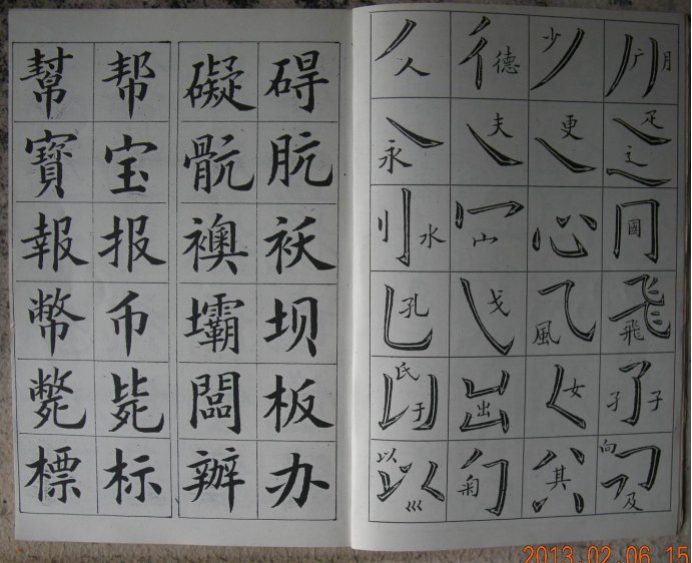 幫 帮 礙 碍
寶 宝 骯 肮
報 报 襖 袄
幣 币 壩 坝
斃 毙 闆 板
標 标 辦 办
人 德 少 广 月
永 夫 更 疋 辶
水 心 國
孔 戈 風 飛
氏 于 出 女 孑 子
以 巛 菊 其 向 及
2013.02.06 15